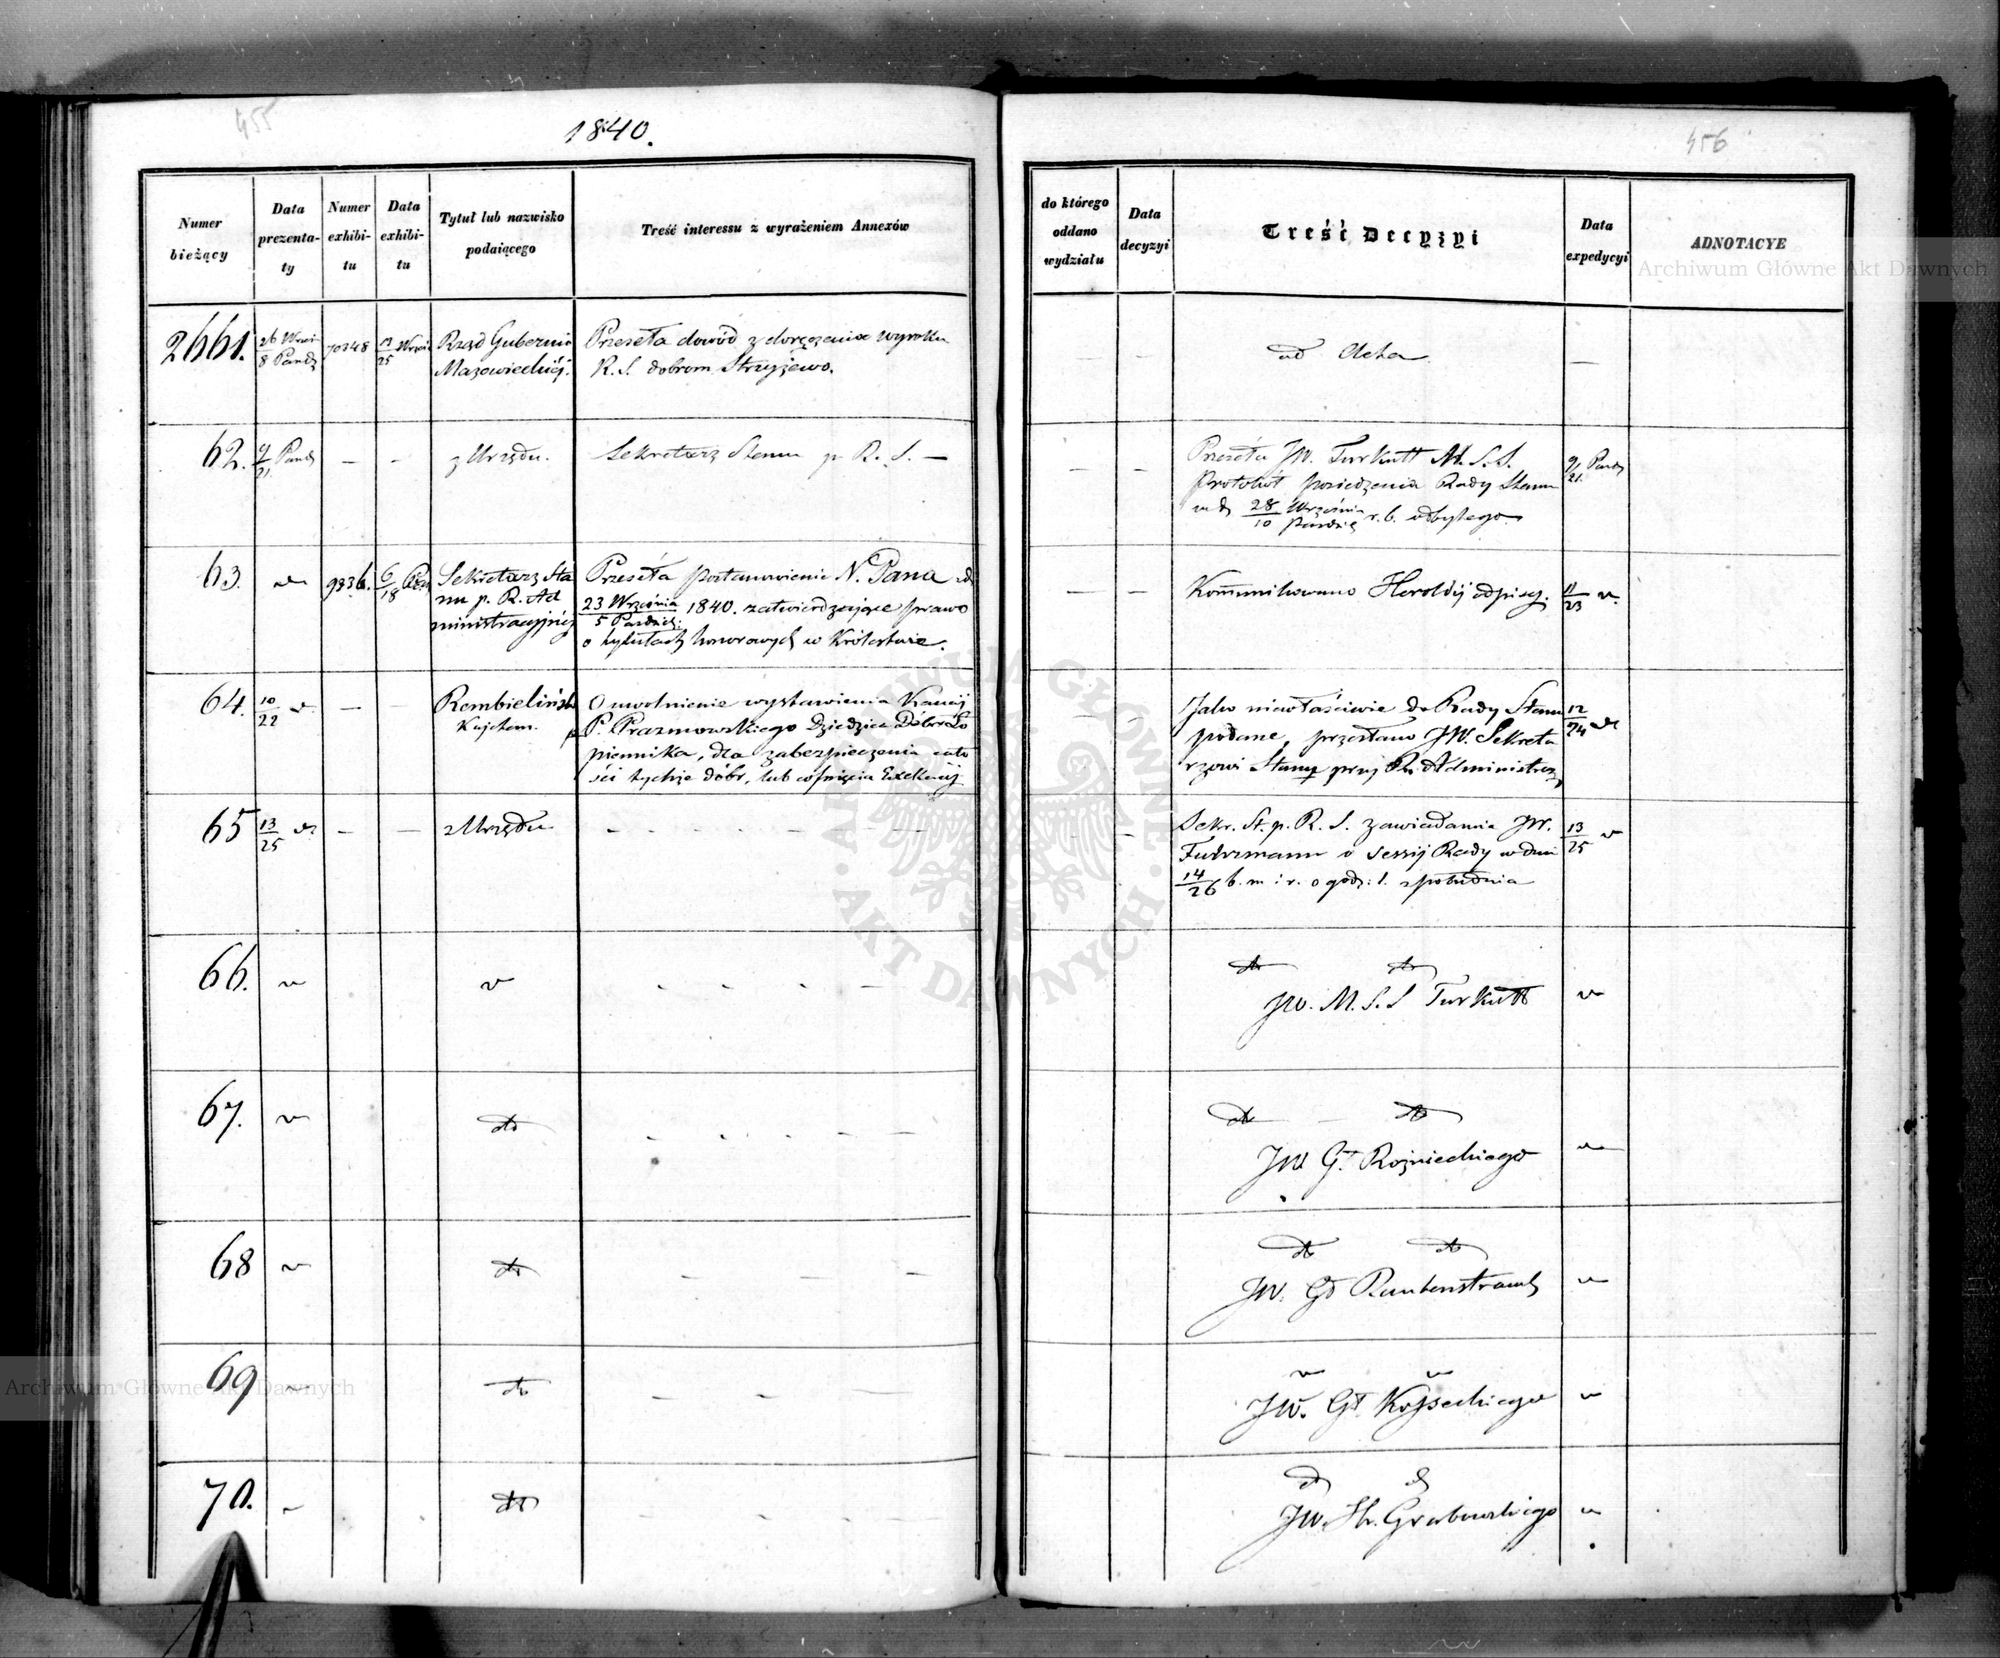 455
1840.
456
Numer bieżący
Data prezenta-ty
Numer exhibi-tu
Data exhibi-tu
Tytuł lub nazwisko podaiącego
Treść interessu z wyrażeniem Annexów
do którego oddano wydziału
Data decyzyi
Treść Decyzyi
Data expedycyi
ADNOTACYE
Archiwum Główne Akt Dawnych
2661. 26 Wrześ 8 Paźdz 70348 13/25 Wrześ Rząd Gubernii Przeseła dowód z doręczenia wyroku
Mazowieckiéj. R. S. dobrom Strzyżewo.
ad Acta —
62. 9/21 Paźdz — — z Urzędu. Sekretarz Stanu p. R. S. —
— — Przeseła JW. Turkułł M. S. S. 9/21 Paźdz
Protokół posiedzenia Rady Stanu
28 Września / 10 Paździ r. b. odbytego.
63. 9836. 6/18 Sekretarz Sta Przeseła postanowienie N. Pana
nu p. R. Ad 23 Września / 5 Paździ: 1840. zatwierdzające prawo
ministracyjnéj o tytułach honorowych w Królestwie.
— — Kommunikowano Heroldij odpisy. 11/23
64. 10/22 — — Rembieliński O uwolnienie wystawienia Kaucij
Kajetan. P. Prazmowskiego Dziedzica Dobr Ło
piennika, dla zabezpieczenia cało
ści tychże dóbr, lub cofnięcia Exekucij
Jako niewłaściwie do Rady Stanu 12/24
podane, przesłano JW. Sekreta
rzowi Stanu przy R. Administra.
65 13/25 — — z Urzędu
Sekr. St. p. R. S. zawiadamia JW. 13/25
Fuhrmann o sessij Rady w dniu
14/26 b. m i r. o godz: 1. z południa
66.
do do
JW. M. S. S Turkułł
67. do
do — do
JW Gł Rożnieckiego
68 do
do do
JW. Gł Rautenstrauch
69 do
JW. Gł Kosseckiego
70. do
JW. Hr. Grabowskiego
Archiwum Główne Akt Dawnych
ARCHIWUM GŁÓWNE · AKT DAWNYCH ·